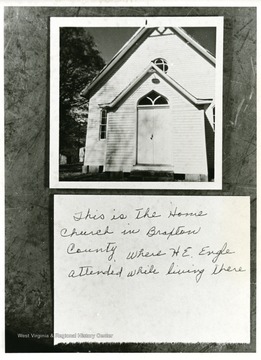 This is The Home
Church in Braxton
County, where H.E. Engle
attended while living there
West Virginia & Regional History Center